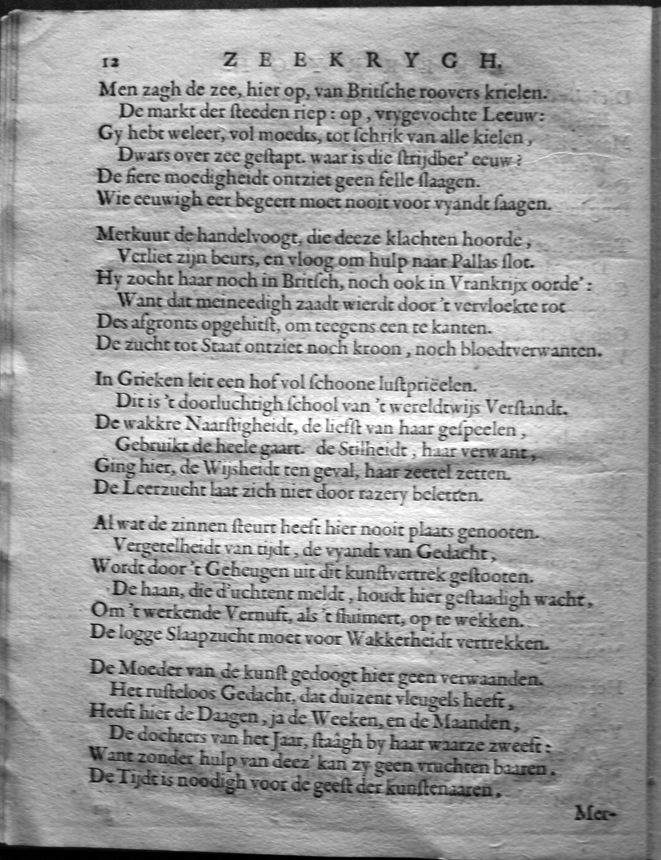 12 ZEEKRYGH.
Men zagh de zee, hier op, van Britſche roovers krielen.
De markt der ſteeden riep : op, vrygevochte Leeuw:
Gy hebt weleer, vol moedts, tot ſchrik van alle kielen,
Dwars over zee geſtapt. waar is die ſtrijdber' eeuw?
De fiere moedigheidt ontziet geen felle ſlaagen.
Wie eeuwigh eer begeert moet nooit voor vyandt ſaagen.
Merkuur de handelvoogt, die deeze klachten hoorde,
Verliet zijn beurs, en vloog om hulp naar Pallas ſlot.
Hy zocht haar noch in Britſch, noch ook in Vrankrijx oorde':
Want dat meineedigh zaadt wierdt door 't vervloekte rot
Des afgronts opgehitſt, om teegens een te kanten.
De zucht tot Staat ontziet noch kroon, noch bloedtverwanten.
In Grieken leit een hof vol ſchoone luſtprieëlen.
Dit is 't doorluchtigh ſchool van 't wereldtwijs Verſtandt.
De wakkre Naarſtigheidt, de liefſt van haar geſpeelen,
Gebruikt de heele gaart. de Stilheidt, haar verwant,
Ging hier, de Wijsheidt ten geval, haar zeetel zetten.
De Leerzucht laat zich niet door razery beletten.
Al wat de zinnen ſteurt heeft hier nooit plaats genooten.
Vergetelheidt van tijdt, de vyandt van Gedacht,
Wordt door 't Geheugen uit dit kunſtvertrek geſtooten.
De haan, die d'uchtent meldt, houdt hier geſtaadigh wacht,
Om 't werkende Vernuft, als 't ſluimert, op te wekken.
De logge Slaapzucht moet voor Wakkerheidt vertrekken.
De Moeder van de kunſt gedoogt hier geen verwaanden.
Het ruſteloos Gedacht, dat duizent vleugels heeft,
Heeft hier de Daagen, ja de Weeken, en de Maanden,
De dochters van het Jaar, ſtaâgh by haar waarze zweeft:
Want zonder hulp van deez' kan zy geen vruchten baaren.
De Tijdt is noodigh voor de geeſt der kunſtenaaren.
Mer-